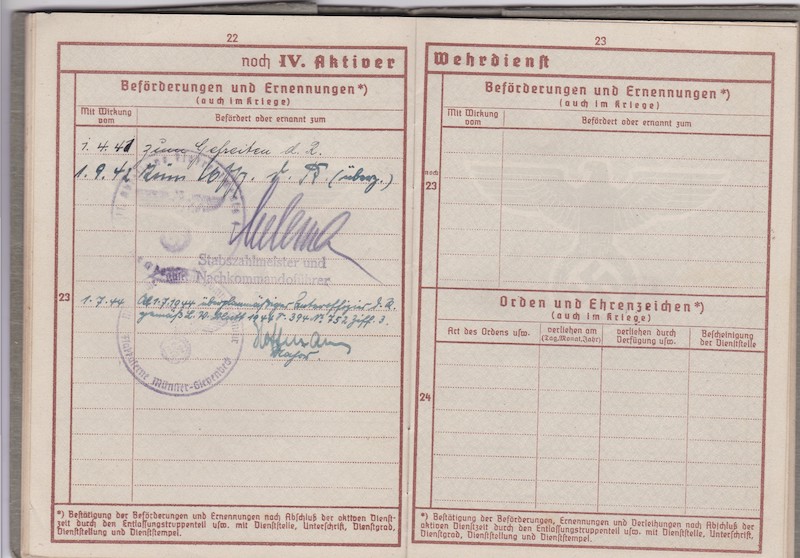 22
noch IV. Aktiver
Beförderungen und Ernennungen*)
(auch im Kriege)
Mit Wirkung vom
Befördert oder ernannt zum
1.4.41 zum Gefreiten d. R.
1.9.42 zum Uffz. d. R. (überz.)
Stabszahlmeister und
Nachkommandoführer
23
1.7.44 Ab 1.7.1944 überplanmäßiger Unteroffizier d. R.
gemäß L.V.Blatt 1944 S. 394 Nr 752 Ziff. 3.
Hoffmann
Major.
Münster
*) Bestätigung der Beförderungen und Ernennungen nach Abschluß der aktiven Dienst-
zeit durch den Entlassungstruppenteil usw. mit Dienststelle, Unterschrift, Dienstgrad,
Dienststellung und Dienststempel.
23
Wehrdienst
Beförderungen und Ernennungen*)
(auch im Kriege)
Mit Wirkung vom
Befördert oder ernannt zum
noch
23
Orden und Ehrenzeichen*)
(auch im Kriege)
Art des Ordens usw.
verliehen am (Tag, Monat, Jahr)
verliehen durch Verfügung usw.
Bescheinigung der Dienststelle
24
*) Bestätigung der Beförderungen, Ernennungen und Verleihungen nach Abschluß der
aktiven Dienstzeit durch den Entlassungstruppenteil usw. mit Dienststelle, Unterschrift,
Dienstgrad, Dienststellung und Dienststempel.